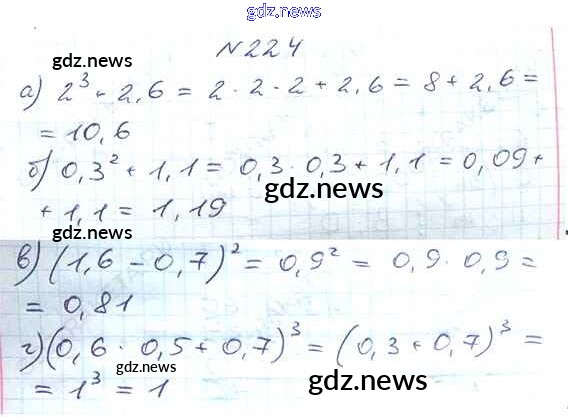 gdz.news
gdz.news
N224
gdz.news
а) 2³ + 2,6 = 2 · 2 · 2 + 2,6 = 8 + 2,6 =
= 10,6
б) 0,3² + 1,1 = 0,3 · 0,3 + 1,1 = 0,09 +
gdz.news
+ 1,1 = 1,19
gdz.news
в) (1,6 - 0,7)² = 0,9² = 0,9 · 0,9 =
= 0,81
gdz.news
г) (0,6 · 0,5 + 0,7)³ = (0,3 + 0,7)³ =
= 1³ = 1
gdz.news